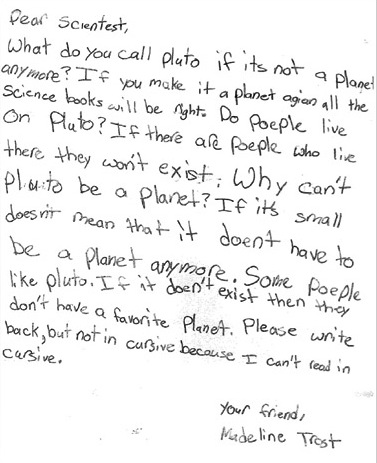 Dear Scientest,
What do you call pluto if its not a planet
anymore? If you make it a planet agian all the
Science books will be right. Do poeple live
on Pluto? If there are poeple who live
there they won't exist. Why can't
Pluto be a planet? If it's small
doesn't mean that it doent have to
be a planet anymore. Some poeple
like pluto. If it doen't exist then they
don't have a favorite Planet. Please write
back, but not in cursive because I can't read in
cursive.
Your friend,
Madeline Trost